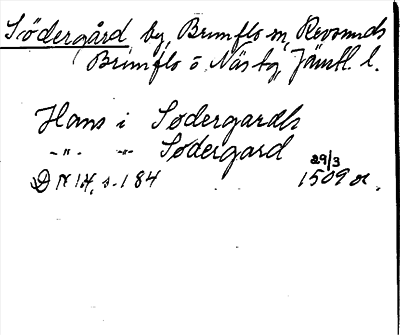 Södergård by, Brunflo sn, Revsunds
Brunflo o. Näs tg, Jämtl. l.
Hans i Sødergardh
-"- -"- Sødergard
DN 14, s. 184 29/3 1509 or.